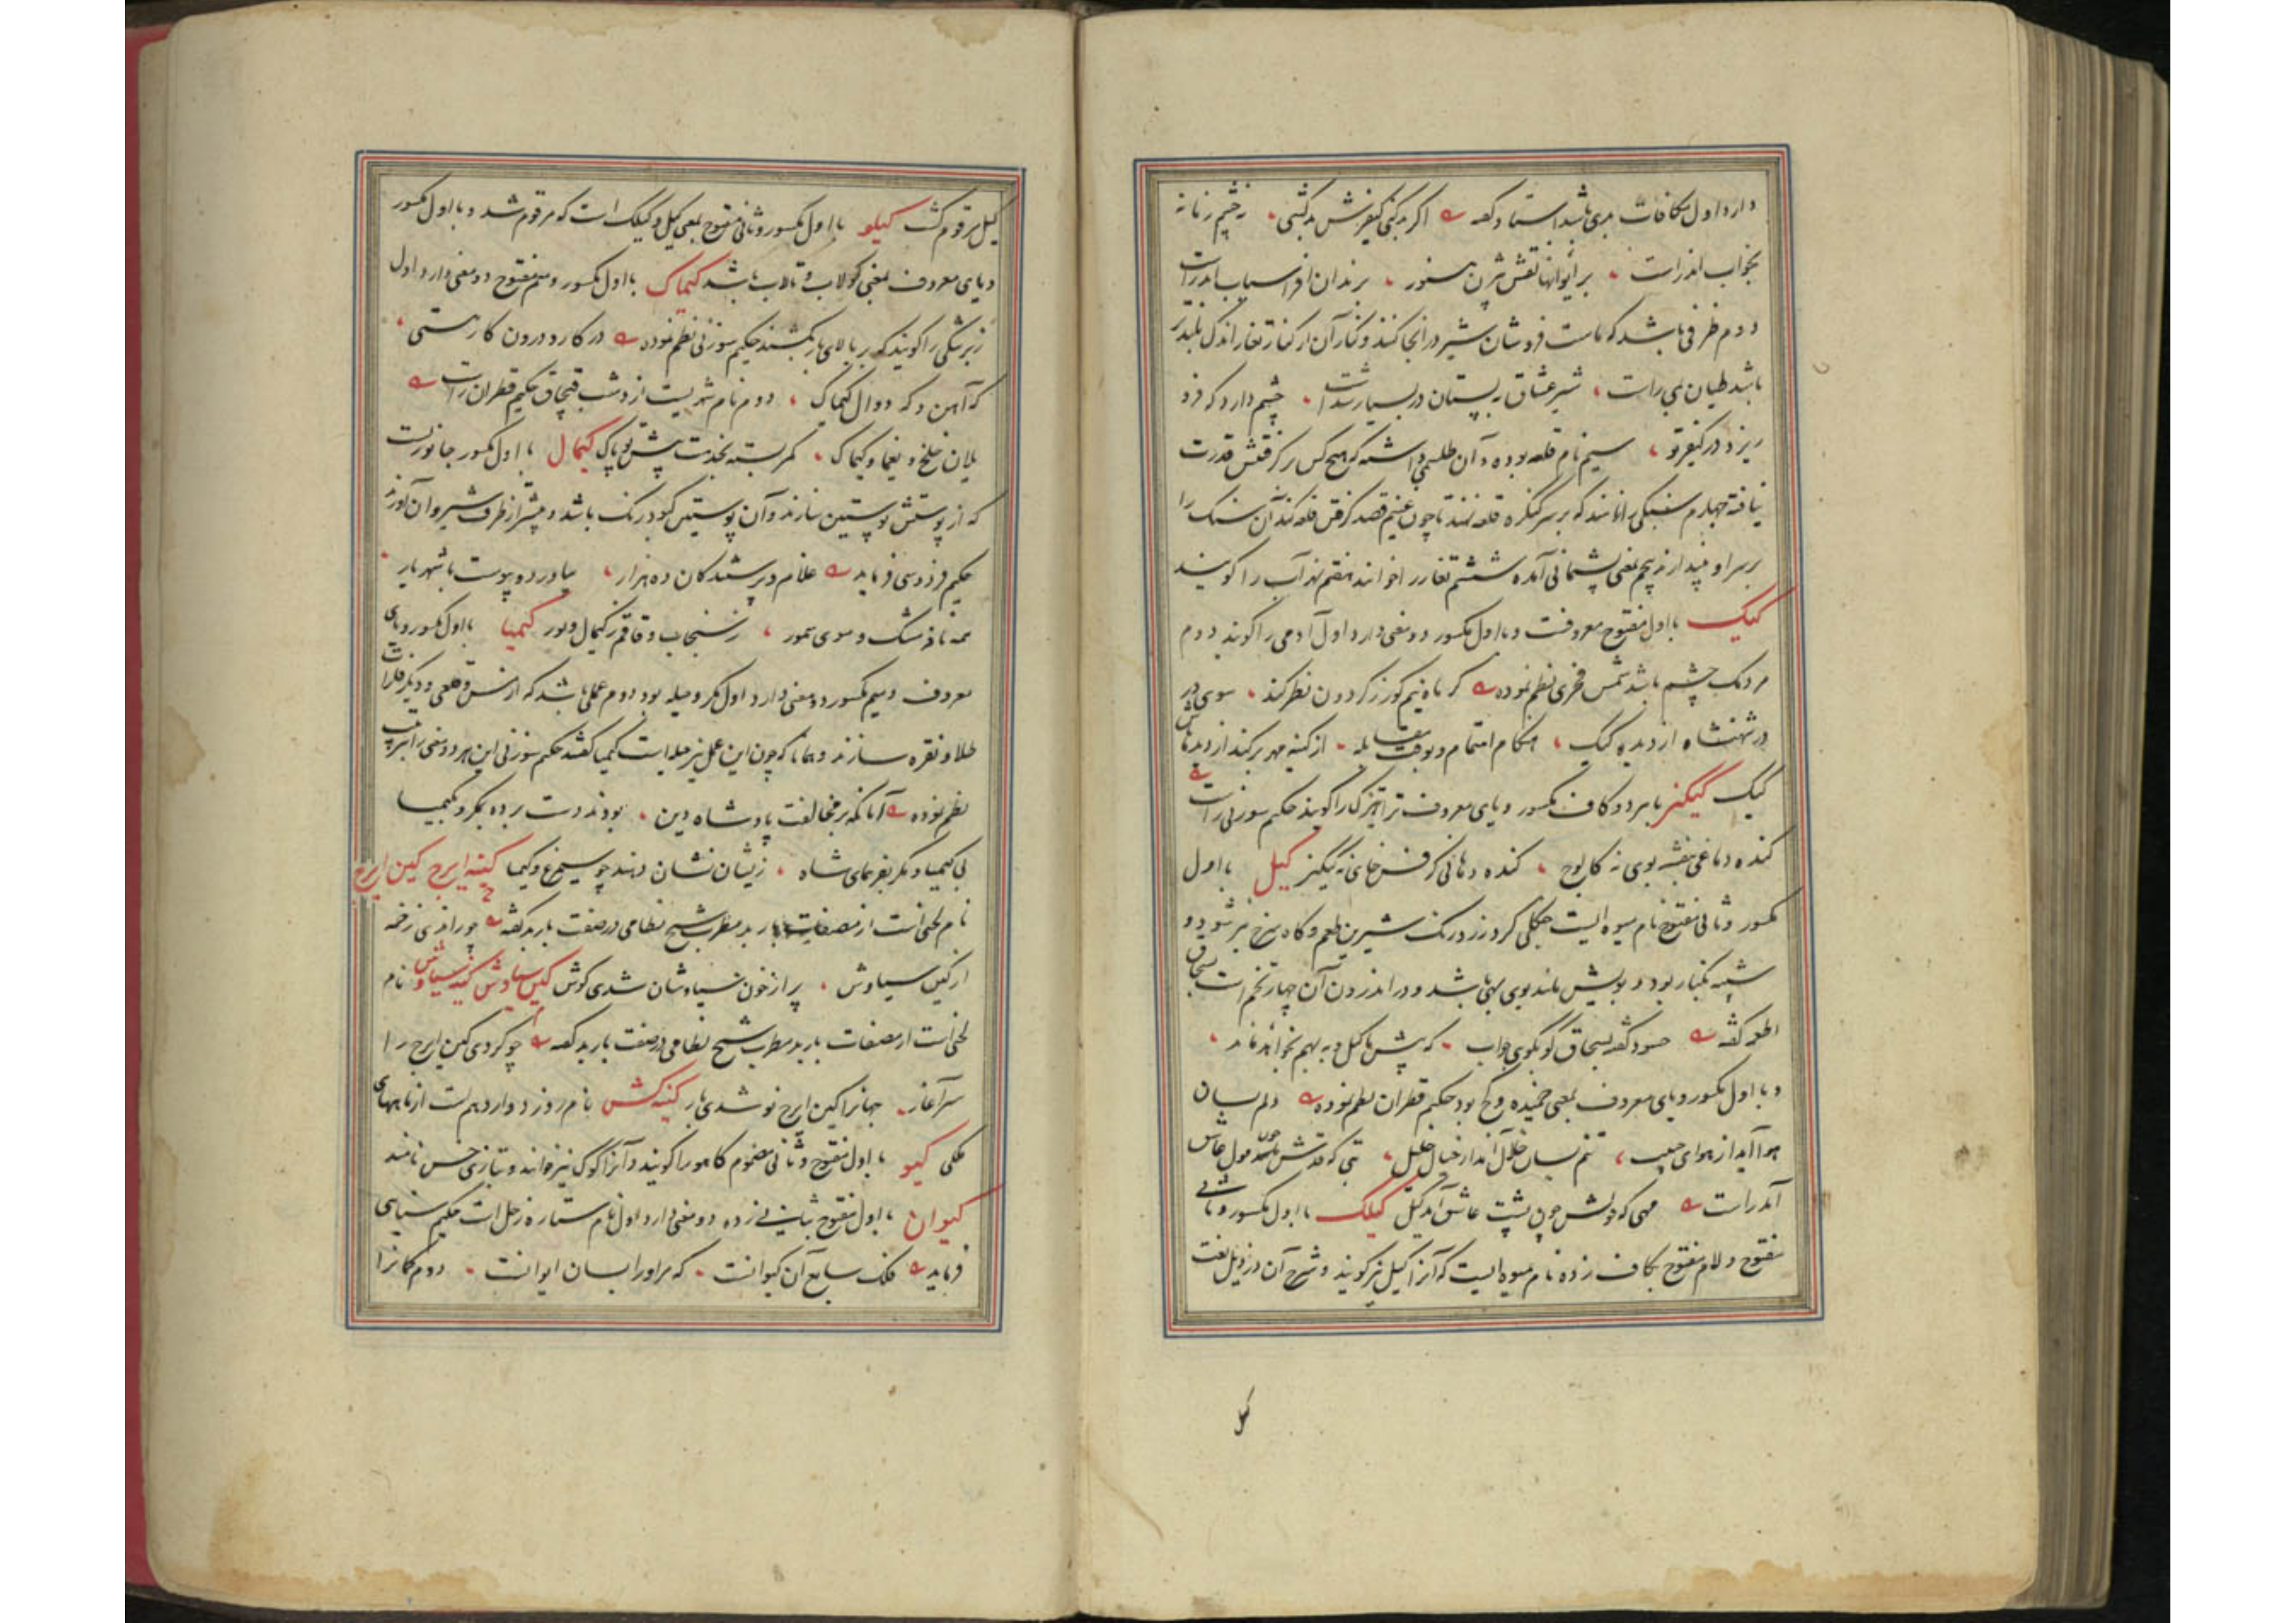 دارد اول مکافات بدی باشد استاد گفته اگر بد کنی کیفرش بد کشی نه چشم زمانه
بخواب اندر است بر ایوانها نقش بیژن هنوز بزندان افراسیاب اندر است
دوم ظرفی باشد که ماست فروشان شیر در آنجا کنند و کنار آن از کنار تغار اندک بلندتر
باشد طیان بمی راست شیر عشاق به پستان در بسیار شدست چشم دارد که فرو
ریزد در کیفر تو سیم نام قلعه بوده و آن طلسمی داشته که هیچ کس بر گرفتنش قدرت
نیافته چهارم سنگی را نامند که بر سر کنگره قلعه نهند تا چون غنیم قصد گرفتن قلعه کند آن سنگ را
بر سر او بیندازند پنجم بمعنی پشیمانی آمده ششم تغار را خوانند هفتم نهر آب را گویند
کیک با اول مفتوح معروفست و با اول مکسور دو معنی دارد اول آدمی را گویند دوم
مردمک چشم باشد شمس فخری نظم نموده گر ماه نیم کور ز گردون نظر کند سوی در
در شهنشاه از دیده کیک هنگام انتقام و بوقت مقابله از کینه مهر برکند از دیدهاش
کیک کیکیز با هر دو کاف مکسور و یای معروف تره‌تیزک را گویند حکیم سوزنی راست
کنده دماغی بنفشه بوی نه کابوح کنده دهانی کرفس خای نه کیکیز کیل با اول
مکسور و ثانی مفتوح نام میوه ایست جنگلی گرد زرد رنگ شیرین طعم و گاه سرخ نیز شود و
شبیه بکنار بود و بویش مانند بوی بهی باشد و در اندرون آن چهار تخم است بسحاق
اطعمه گفته حسود گفته بسحاق گو بگوی جواب که پیش ما کیل و به بهم نخواهد ماند
و با اول مکسور و یای معروف بمعنی خمیده و کج بود حکیم قطران نظم نموده دلم بسان
هوا آید از هوای حبیب تنم بسان خلال آمد از خیال خلیل بتی که قدش
آمد راست مهی که دلش چون پشت عاشق آمد کیل کیلک با اول مکسور و ثانی
مفتوح و لام مفتوح بکاف زده نام میوه ایست که آنرا کیل نیز گویند و شرح آن در ذیل لغت
کیل
کیل مرقوم گشت کیلو با اول مکسور و ثانی مفتوح بمعنی کیل و کیلک است که مرقوم شد و با اول مکسور
و یای معروف بمعنی کولاب و تالاب باشد کیماک با اول مکسور و میم مفتوح دو معنی دارد اول
زبرتنگی را گویند که بر بالای بار کشند حکیم سوزنی نظم نموده در کار و درون کار هستی
که آهن و گه دوال کیماک دوم نام شهریست از دشت قپچاق حکیم قطران راست
یلان خلخ و یغما و کیماک کمر بسته بخدمت پیش تو پاک کیمال با اول مکسور جانوریست
که از پوستش پوستین سازند و آن پوستین کبود رنگ باشد و بیشتر از طرف شیروان آورند
حکیم فردوسی فرماید غلام و پرستندگان ده هزار بیاورده پوست با شهریار
همه نافه مشک و موی سمور ز سنجاب و قاقم ز کیمال و بور کیمیا با اول مکسور و یای
معروف و میم مکسور دو معنی دارد اول مکر و حیله بود دوم عملی باشد که از مس و قلعی و دیگر فلزات
طلا و نقره سازند و همانا که چون این عمل نیز حیله است کیمیا گفتند حکیم سوزنی این هر دو معنی را بترتیب
نظم نموده آنانکه بر مخالفت پادشاه دین بودند دست برده بمکر و بکیمیا
بی کیمیا و مکر بفرمای شاه زیشان نشان دهند چو سیمرغ و کیمیا کینه ایرج کین ایرج
نام لحنی است از مصنفات باربد مطرب شیخ نظامی در صفت باربد گفته چو راندی زخمه
از کین سیاوش پر از خون سیاوشان شدی گوش کین سیاوش کینه سیاوش نام
لحنی است از مصنفات باربد مطرب شیخ نظامی در صفت باربد گفته چو کردی کین ایرج را
سرآغاز جهانرا کین ایرج نو شدی باز کینه کش نام روز دوازدهم است از ماههای
ملکی کیو با اول مفتوح و ثانی مضموم کاهو را گویند و آنرا کوک نیز خوانند و بتازی خس نامند
کیوان با اول مفتوح بثانی زده دو معنی دارد اول نام ستاره زحل است حکیم سنایی
فرماید فلک سابع آن کیوانست که مر او را بسان ایوانست دوم کمانرا